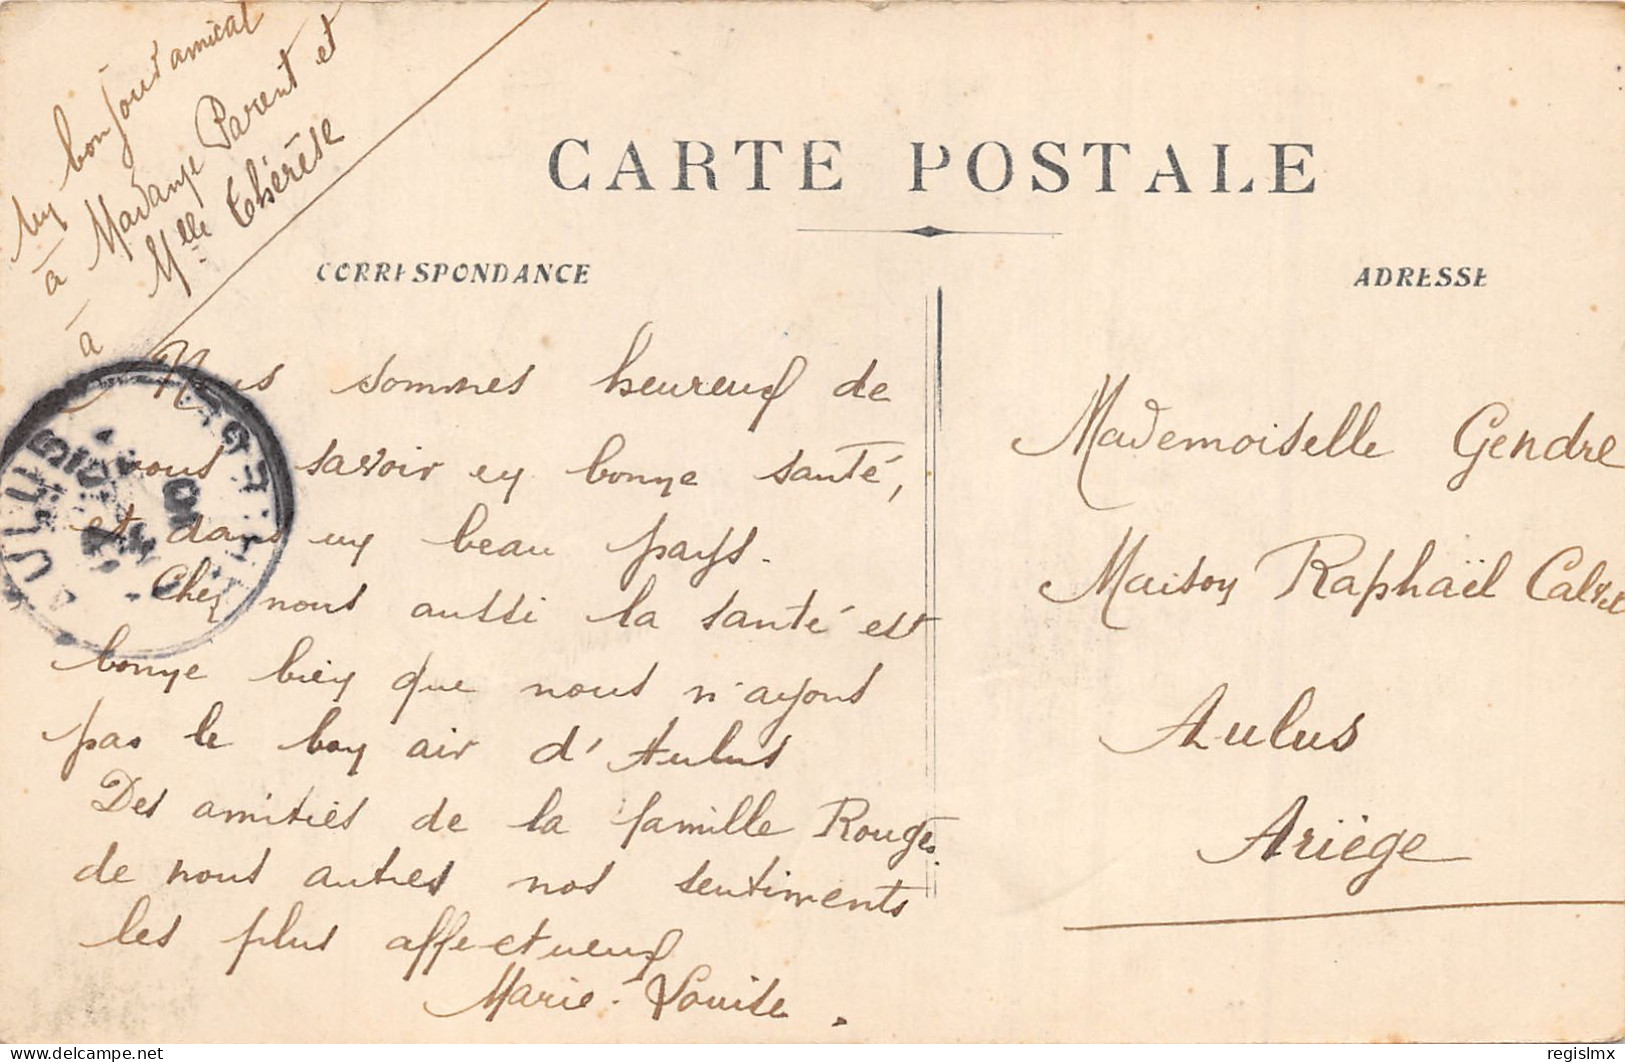 Un bonjour amical
à Madame Parent et
à Mlle Thérèse
CARTE POSTALE
CORRESPONDANCE
ADRESSE
Nous sommes heureux de
vous savoir en bonne santé,
et dans un beau pays.
Chez nous aussi la santé est
bonne bien que nous n'ayons
pas le bon air d'Aulus
Des amitiés de la famille Rougé
de nous autres nos sentiments
les plus affectueux
Marie-Louise.
Mademoiselle Gendre
Maison Raphaël Calvet
Aulus
Ariège
AULUS
regislmx